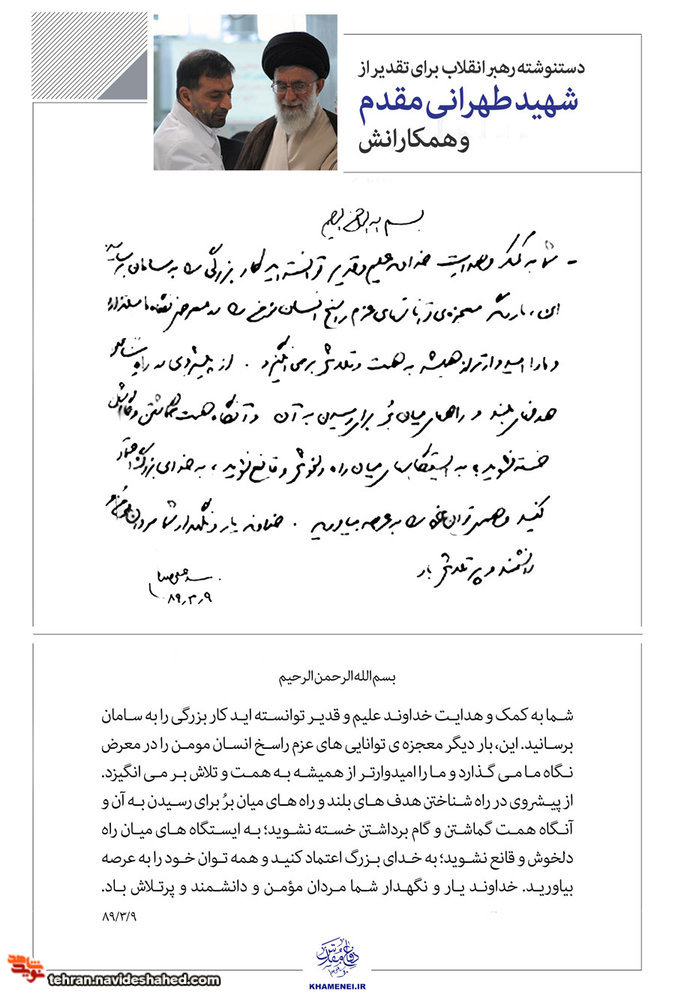 دستنوشته رهبر انقلاب برای تقدیر از
شهید طهرانی مقدم
و همکارانش
بسم الله الرحمن الرحیم
- شما به کمک و هدایت خداوند علیم و قدیر توانسته‌اید کار بزرگی را به سامان برسانید
این، بار دیگر معجزه‌ی توانایی‌های عزم راسخ انسان مؤمن را در معرض نگاه ما میگذارد
و ما را امیدوارتر از همیشه به همت و تلاش برمی‌انگیزد. از پیشروی در راه شناختن
هدفهای بلند و راههای میان بُر برای رسیدن به آن و آنگاه همت گماشتن و گام برداشتن
خسته نشوید؛ به ایستگاههای میان راه دلخوش و قانع نشوید، به خدای بزرگ اعتماد
کنید و همه‌ی توان خود را به عرصه بیاورید. خداوند یار و نگهدار شما مردان مؤمن و
دانشمند و پرتلاش باد
۸۹٫۳٫۹
بسم الله الرحمن الرحیم
شما به کمک و هدایت خداوند علیم و قدیر توانسته اید کار بزرگی را به سامان
برسانید. این، بار دیگر معجزه ی توانایی های عزم راسخ انسان مومن را در معرض
نگاه ما می گذارد و ما را امیدوارتر از همیشه به همت و تلاش بر می انگیزد.
از پیشروی در راه شناختن هدف های بلند و راه های میان بُر برای رسیدن به آن و
آنگاه همت گماشتن و گام برداشتن خسته نشوید؛ به ایستگاه های میان راه
دلخوش و قانع نشوید؛ به خدای بزرگ اعتماد کنید و همه توان خود را به عرصه
بیاورید. خداوند یار و نگهدار شما مردان مؤمن و دانشمند و پرتلاش باد.
۸۹/۳/۹
KHAMENEI.IR
نوید شاهد
tehran.navideshahed.com